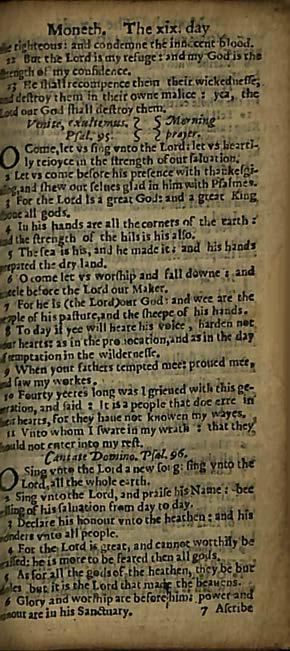 Moneth. The xix. day
righteous: and condemne the innocent blood.
22 But the Lord is my refuge: and my God is the
strength of my confidence.
23 He shall recompence them their wickednesse,
and destroy them in their owne malice: yea, the
Lord our God shall destroy them.
Venite, exultemus. Morning
Psal. 95. prayer.
O Come, let vs sing vnto the Lord: let vs hearti-
ly reioyce in the strength of our saluation.
2 Let vs come before his presence with thanksgi-
uing, and shew our selues glad in him with Psalmes.
3 For the Lord is a great God: and a great King
aboue all gods.
4 In his hands are all the corners of the earth:
and the strength of the hils is his also.
5 The sea is his, and he made it: and his hands
prepared the dry land.
6 O come let vs worship and fall downe: and
kneele before the Lord our Maker.
7 For he is (the Lord) our God: and wee are the
people of his pasture, and the sheepe of his hands.
8 To day if yee will heare his voice, harden not
your hearts: as in the prouocation, and as in the day
of temptation in the wildernesse.
9 When your fathers tempted mee: proued mee,
and saw my workes.
10 Fourty yeeres long was I grieued with this ge-
neration, and said: It is a people that doe erre in
their hearts, for they haue not knowen my wayes.
11 Vnto whom I sware in my wrath: that they
should not enter into my rest.
Cantate Domino. Psal. 96.
O Sing vnto the Lord a new song: sing vnto the
Lord, all the whole earth.
2 Sing vnto the Lord, and praise his Name: bee
telling of his saluation from day to day.
3 Declare his honour vnto the heathen: and his
wonders vnto all people.
4 For the Lord is great, and cannot worthily be
praised: he is more to be feared then all gods.
5 As for all the gods of the heathen, they be but
idoles: but it is the Lord that made the heauens.
6 Glory and worship are before him: power and
honour are in his Sanctuary. 7 Ascribe